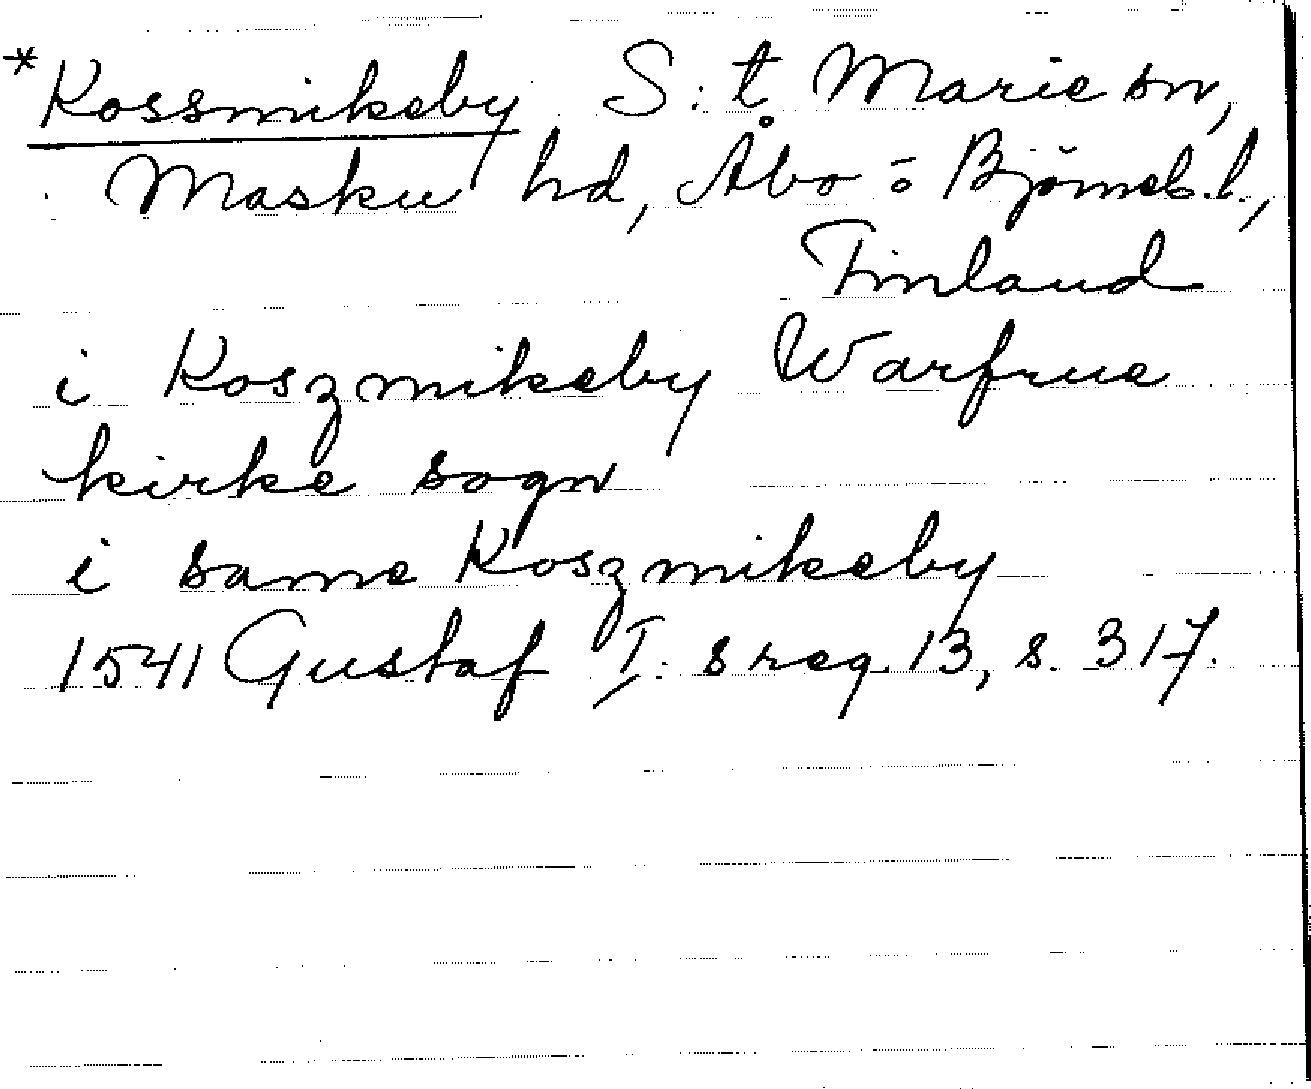 *Kossmikeby S:t Marie sn,
Masku hd, Åbo o Björneb.l.,
Finland
i Koszmikeby Warfrue
kirke sogn
i same Koszmikeby
1541 Gustaf I:s reg 13, s. 317.